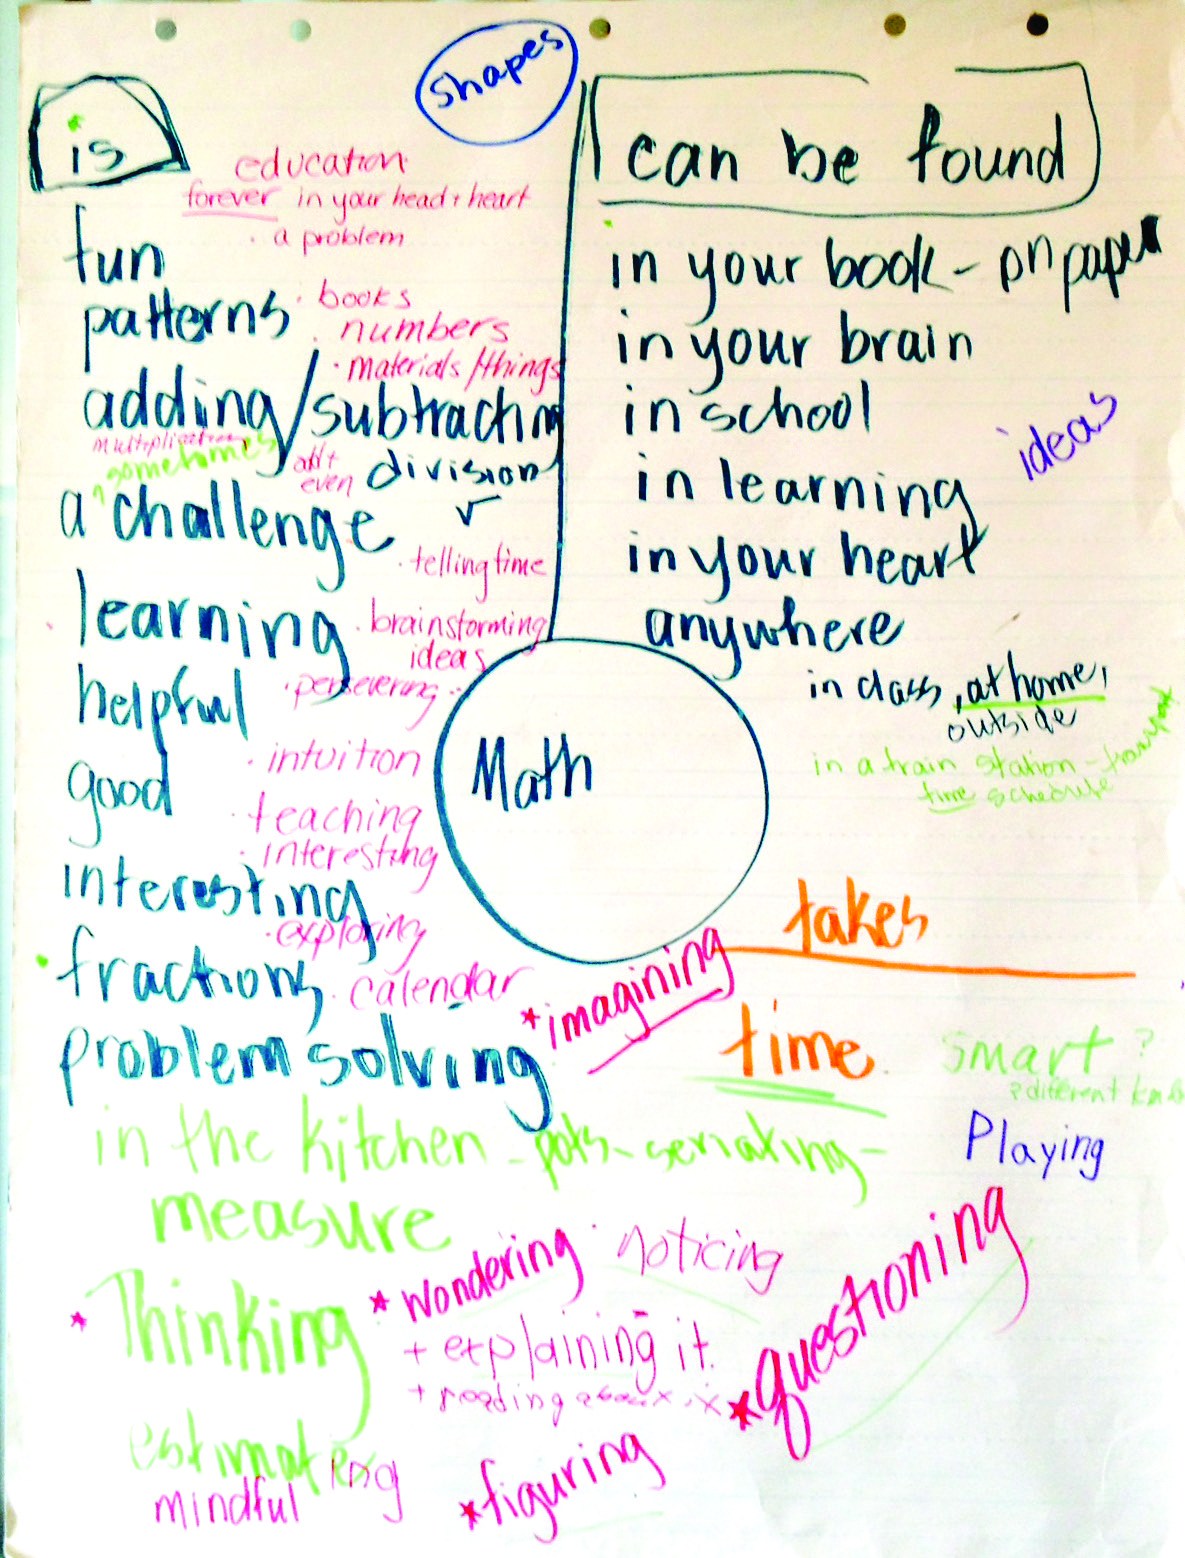 shapes
is
education
forever in your head + heart
· a problem
fun
· books
patterns
· numbers
· materials/things
adding/subtracting
multiplication
sometimes
even
division
√
a challenge
· telling time
learning
· brainstorming
ideas
helpful
· persevering
· intuition
good
· teaching
· interesting
interesting
· exploring
fractions
· calendar
problem solving
can be found
in your book - on paper
in your brain
in school
ideas
in learning
in your heart
anywhere
in class, at home,
outside
in a train station -
time schedule
Math
takes
time
* imagining
smart?
Playing
in the kitchen - pots - seriating -
measure
* Thinking
* wondering
· noticing
+ explaining it.
+ reading about it
* questioning
estimat
mindful
* figuring